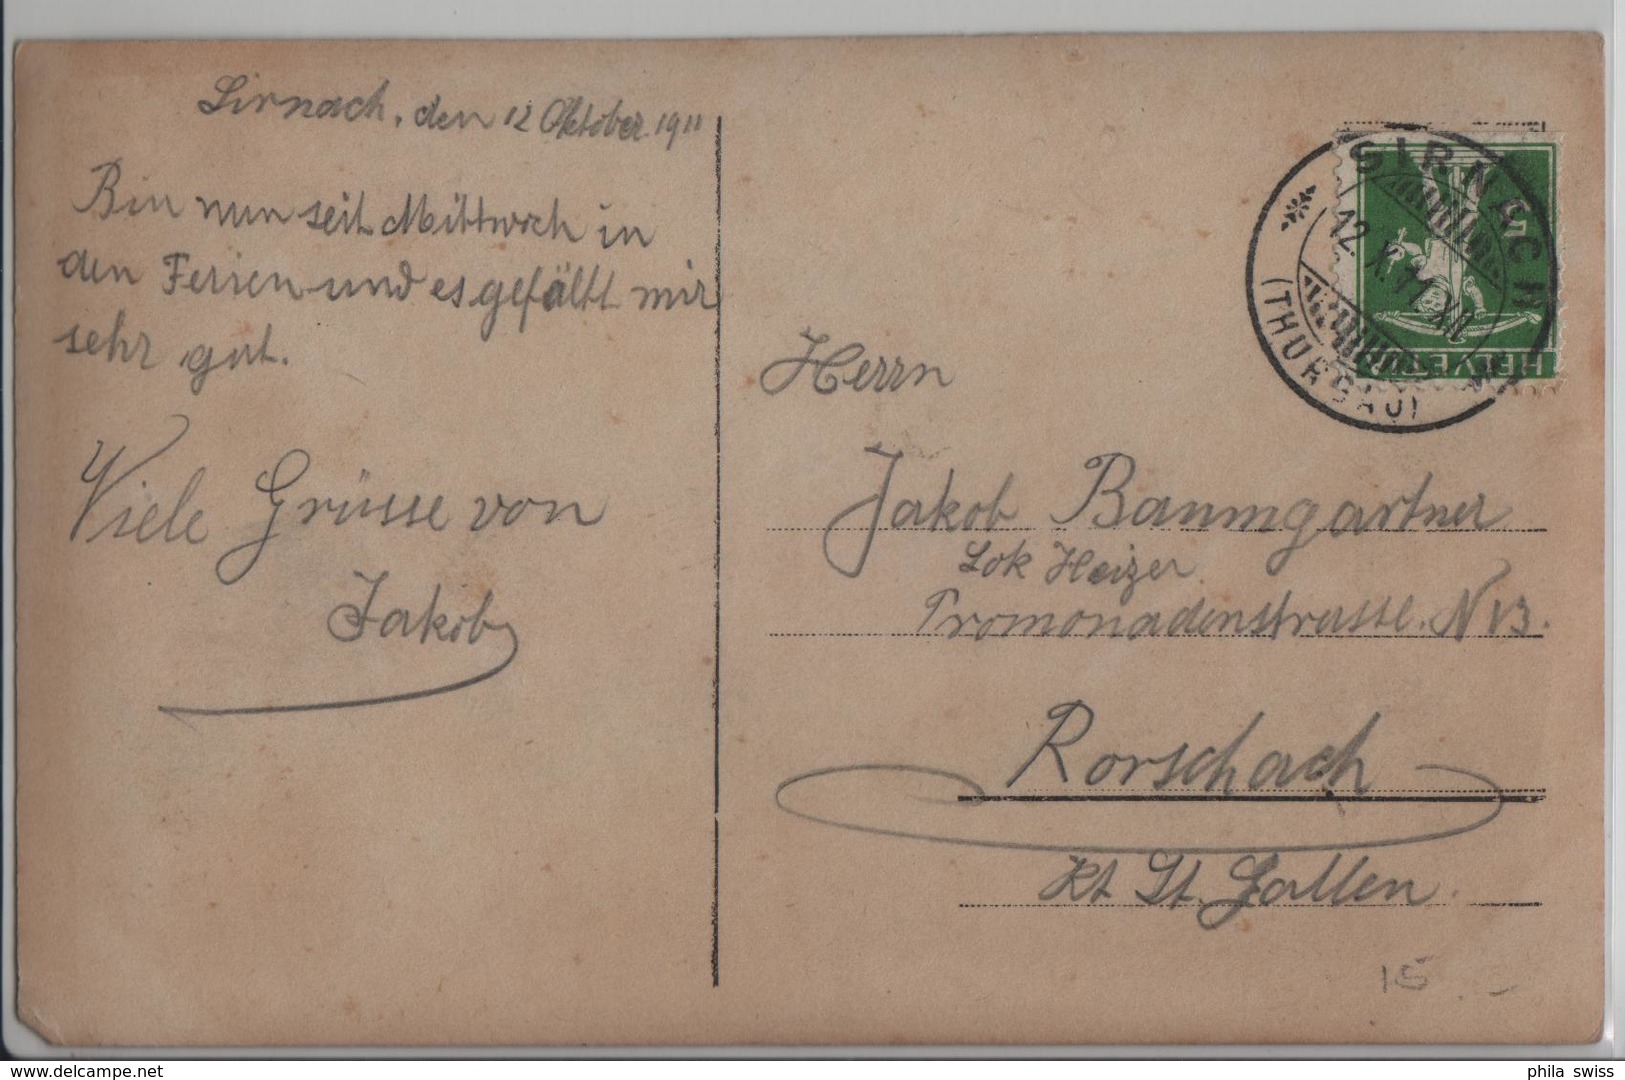 Sirnach, den 12 Oktober 1911
Bin nun seit Mittwoch in
den Ferien und es gefällt mir
sehr gut.
Viele Grüsse von
Jakob
SIRNACH
12.X.11.XII
(THURGAU)
5
HELVETIA
Herrn
Jakob Baumgartner
Lok Heizer
Promonadenstrasse. N 13.
Rorschach
Kt St. Gallen.
15.-
delcampe.net
phila_swiss